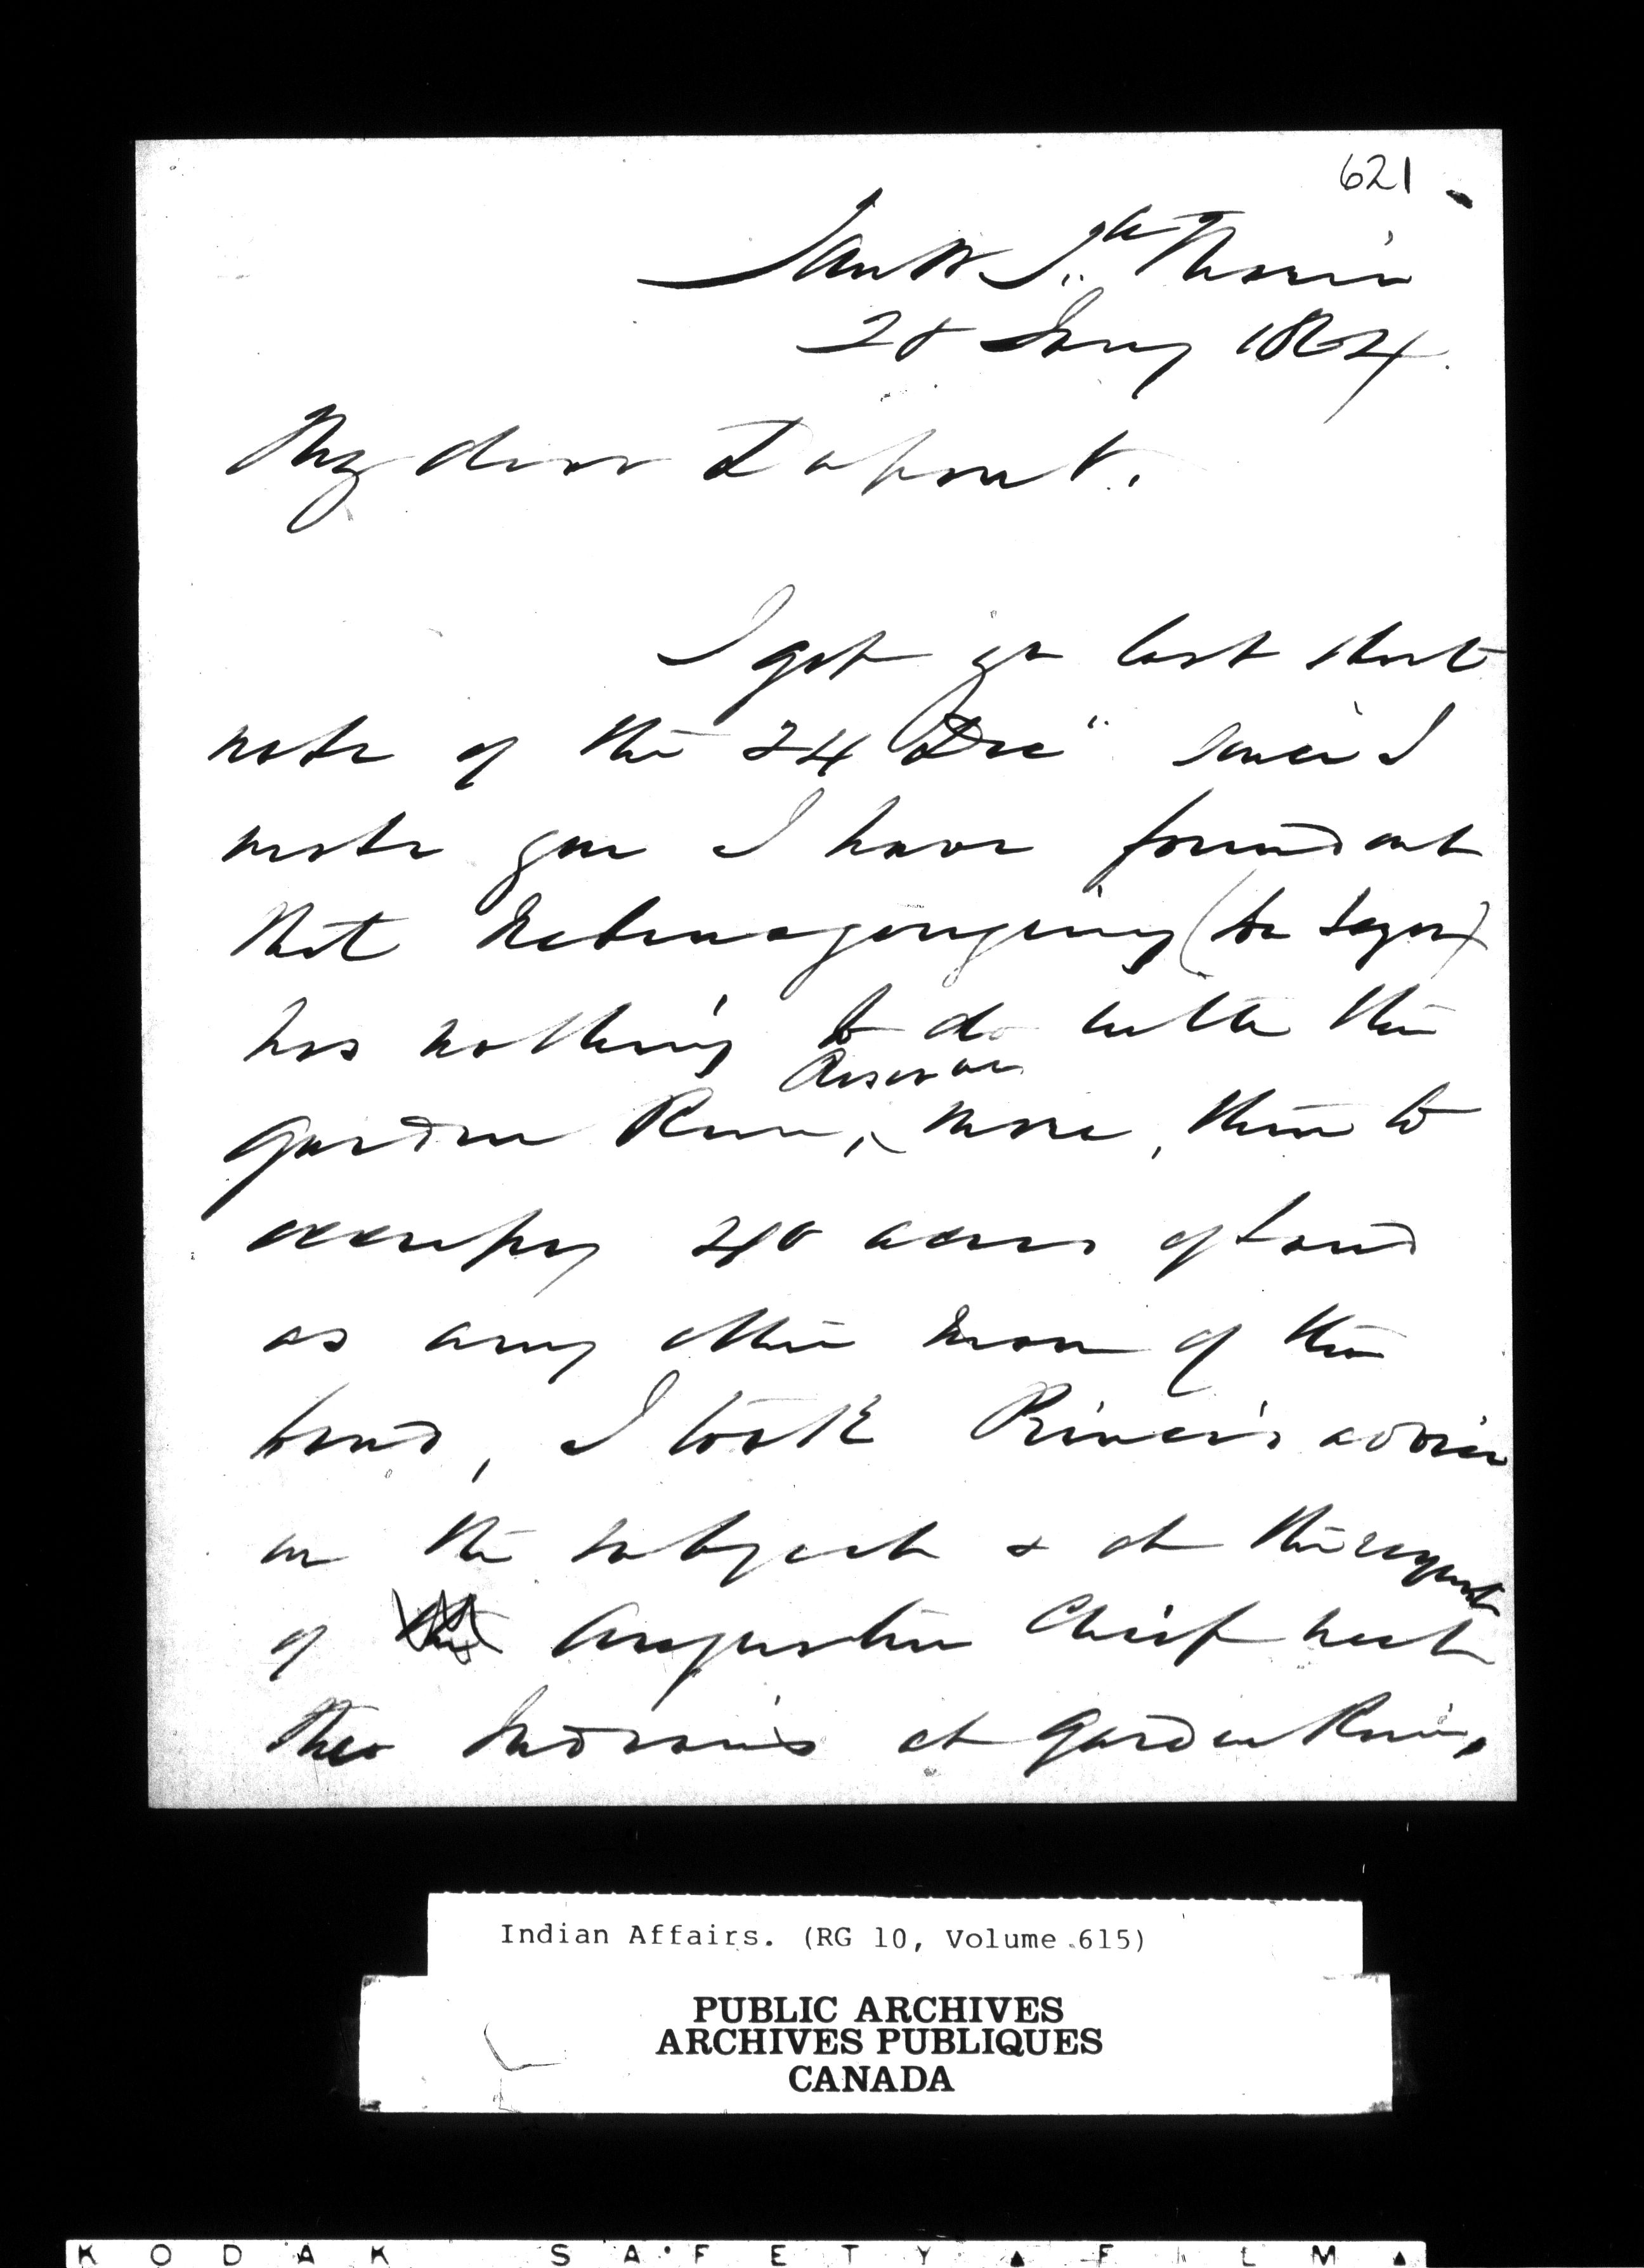 621
Sault Ste Marie
28 Jany 1864.
My dear Dupont.
I got yr last short
note of the 24 Dec" since I
wrote you I have found out
that
has nothing to do with the
Reserve
Garden River, more, than to
occupy 40 acres of land
as any other man of the
band, I took Prince's advice
on the subject & at the request
of Augustin Chief met
the Indians at Garden River,
Indian Affairs. (RG 10, Volume 615)
PUBLIC ARCHIVES
ARCHIVES PUBLIQUES
CANADA
KODAK SAFETY FILM